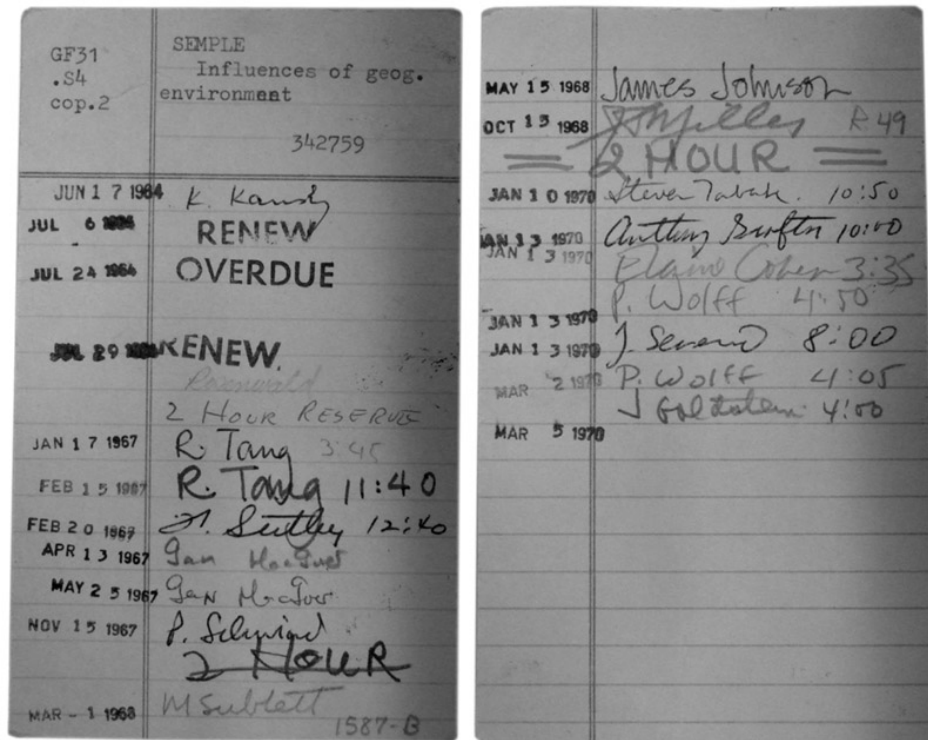 GF31
.S4
cop.2
SEMPLE
Influences of geog.
environment
342759
JUN 17 1964 K. Kandy
JUL 6
RENEW
JUL 24 1964 OVERDUE
JUL 29 RENEW.
Rosenwald
2 HOUR RESERVE
JAN 17 1967 R. Tang 3:45
FEB 15 1967 R. Tang 11:40
FEB 20 1967 12:40
APR 13 1967 Ian
MAY 25 1967 Ian
NOV 15 1967 P. Schmid
2 HOUR
MAR - 1 1968 M Sublett
1587-B
MAY 15 1968 James Johnson
OCT 15 1968 Miller R49
= 2 HOUR =
JAN 10 1970 Steven Tabak. 10:50
JAN 13 1970 Anthony Grafton 10:00
JAN 13 1970 Elaine Cohen 3:35
P. Wolff 4:50
JAN 13 1970
JAN 13 1970 J. 8:00
MAR 2 1970 P. Wolff 4:05
J Goldstein 4:00
MAR 5 1970